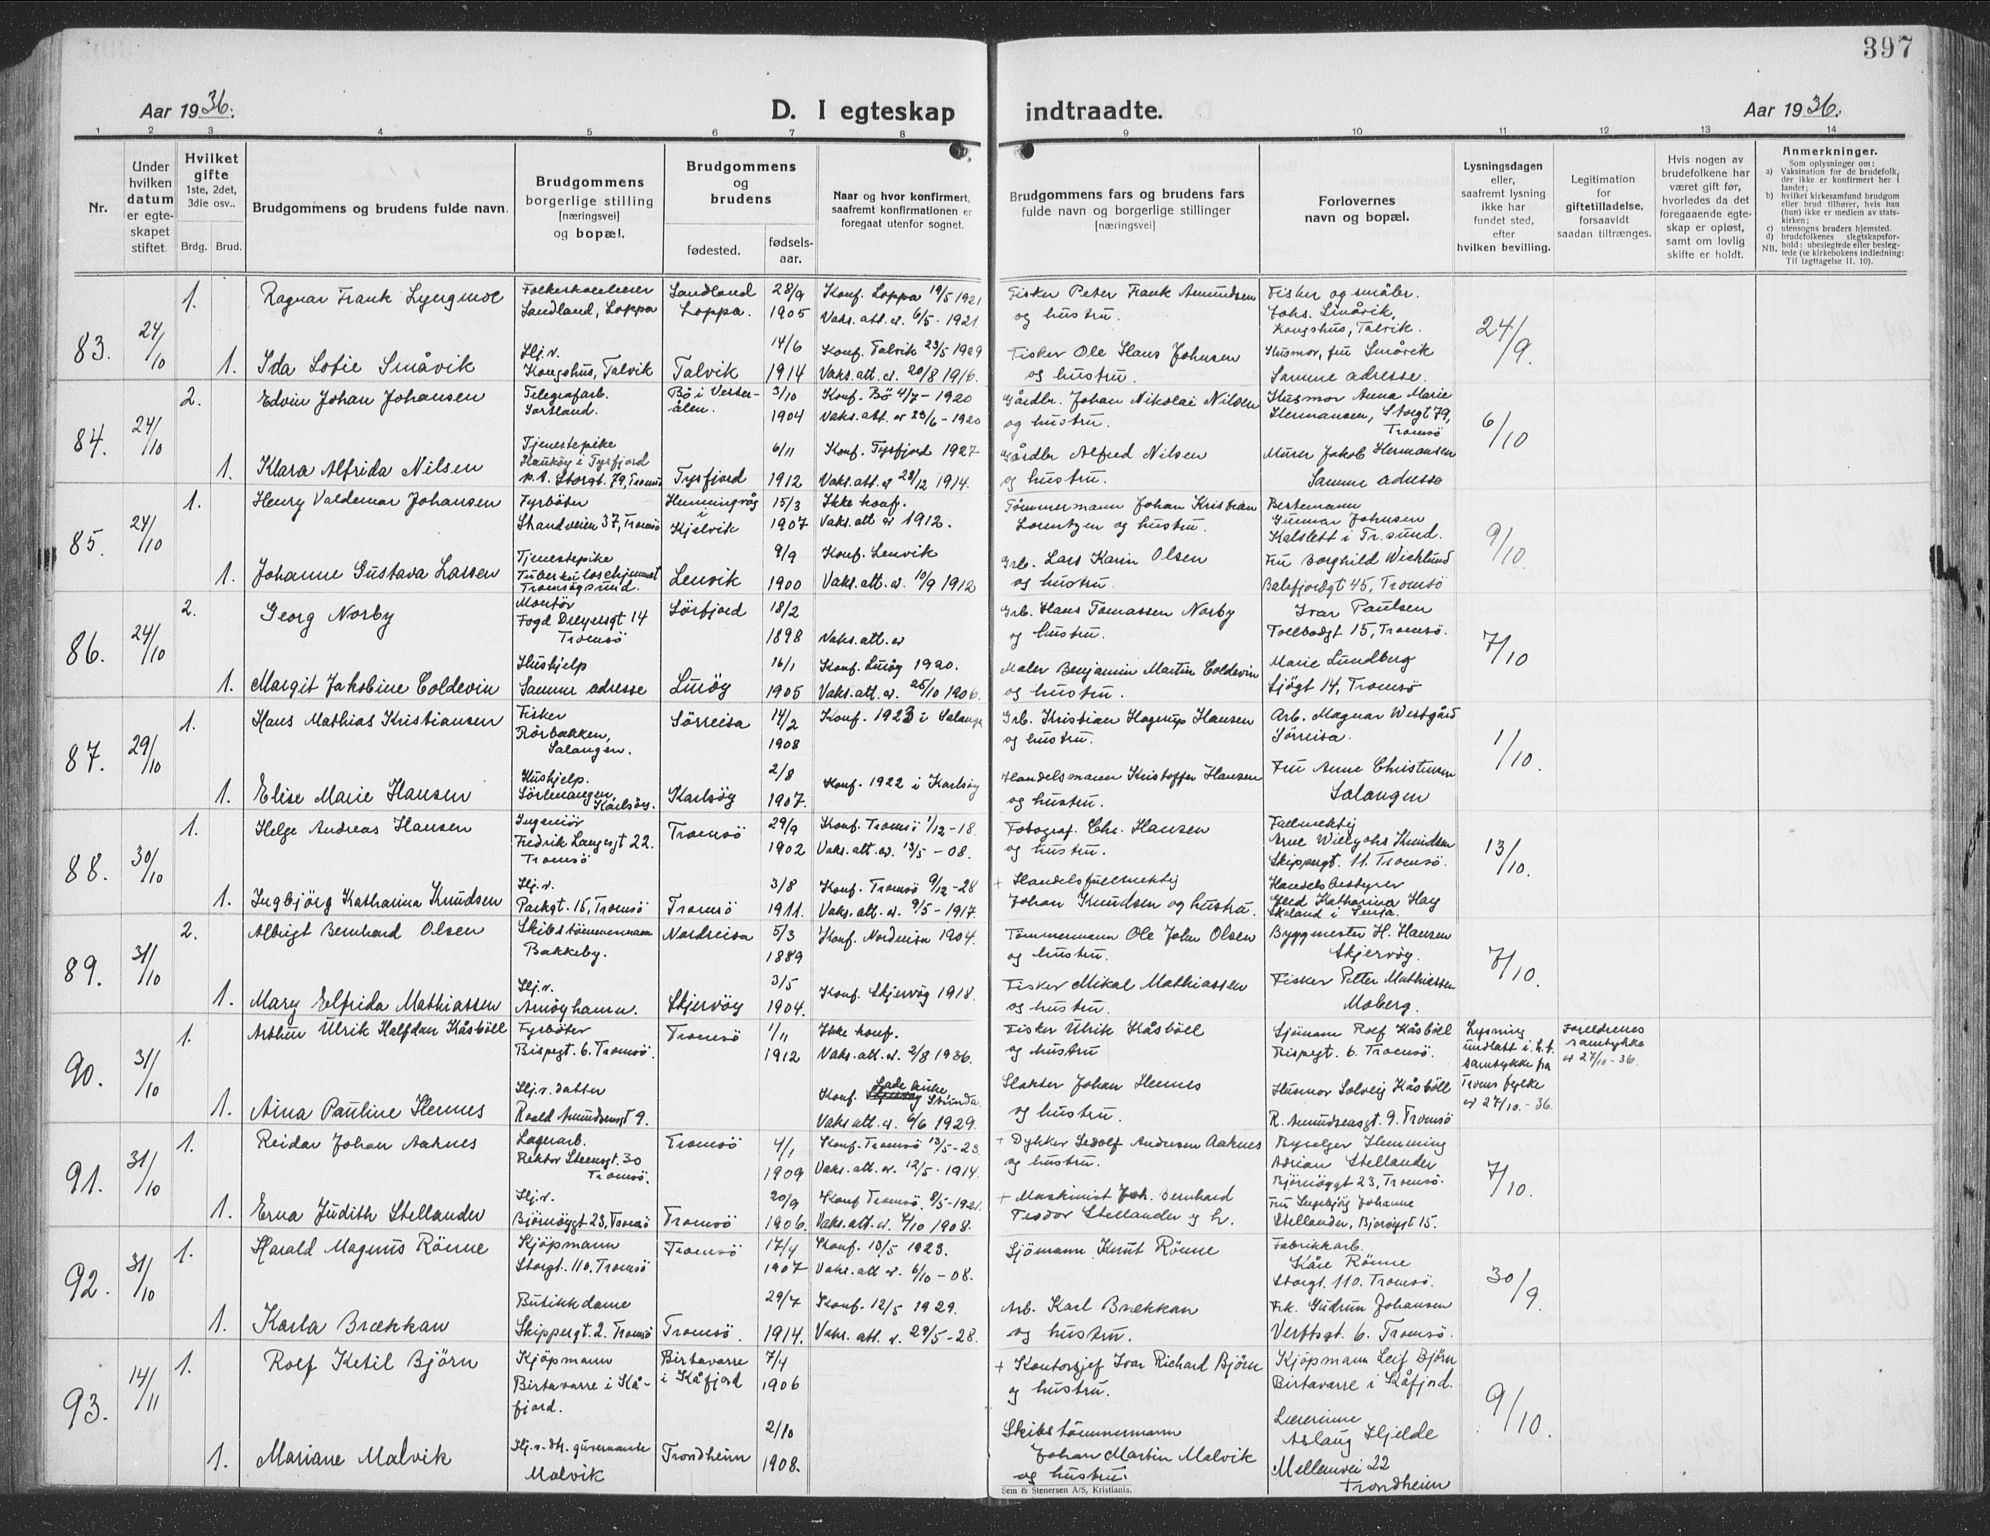 397
Aar 1936.
D. I egteskap
indtraadte.
Aar 1936.
1 2 3 4 5 6 7 8 9 10 11 12 13 14
Nr.
Under
hvilken
datum
er egte-
skapet
stiftet
Hvilket
gifte
1ste, 2det,
3die osv..
Brdg. Brud.
Brudgommens og brudens fulde navn.
Brudgommens
borgerlige stilling
[næringsvei]
og bopæl.
Brudgommens
og
brudens
fødested.
fødsels-
aar.
Naar og hvor konfirmert,
saafremt konfirmationen er
foregaat utenfor sognet.
Brudgommens fars og brudens fars
fulde navn og borgerlige stillinger
[næringsvei]
Forlovernes
navn og bopæl.
Lysningsdagen
eller,
saafremt lysning
ikke har
fundet sted,
efter
hvilken bevilling.
Legitimation
for
giftetilladelse,
forsaavidt
saadan tiltrænges.
Hvis nogen av
brudefolkene har
været gift før,
hvorledes da det
foregaaende egte-
skap er opløst,
samt om lovlig
skifte er holdt.
Anmerkninger.
Som oplysninger om:
a) Vaksination for de brudefolk,
der ikke er konfirmert her i
landet;
b) hvilket kirkesamfund brudgom
eller brud tilhører, hvis han
(hun) ikke er medlem av stats-
kirken;
c) utensogns bruders hjemsted.
d) brudefolkenes slegtskapsfor-
hold: ubeslegtede eller besleg-
NB. tede (se kirkebokens indledning:
Til iagttagelse II. 10).
83. 24/10
1. Ragnar Frank Lyngmoe
Sandland, Loppa
Sandland
Loppa.
28/9
1905
Konf. Loppa 19/5 1921
Vaks. att. v. 6/5 - 1921.
Fisker Peter Frank Amundsen
og hustru.
Fisker og småbr.
Johs. Småvik,
Kongshus, Talvik.
24/9
1. Ida Sofie Småvik
Hj.v.
Kongshus, Talvik
Talvik
14/6
1914
Konf. Talvik 23/5 1929
Vaks. att. v. 20/8 1916.
Fisker Ole Hans Johnsen
og hustru.
Husmor, fru Småvik
Samme adresse.
84. 24/10
2. Edvin Johan Johansen
Telegrafarb.
Sortland.
Bø i Vester-
ålen.
3/10
1904
Konf. Bö 4/7 - 1920
Vaks. att. v 23/6 - 1920
Gårdbr. Johan Nikolai Nilsen
og hustru.
Husmor Anna Marie
Hermansen, Storgt 79,
Tromsö
6/10
1. Klara Alfrida Nilsen
Tjenestepike
Haukøy i Tysfjord
p.t. Storgt. 79, Tromsö
Tysfjord
6/11
1912
Konf. Tysfjord 1927
Vaks. att. v. 28/12 1914.
Gårdbr Alfred Nilsen
og hustru.
Murer Jakob Hermansen
Samme adresse
85. 24/10
1. Henry Valdemar Johansen
Fyrbøter
Strandveien 37, Tromsö
Honningvåg
i
Kjelvik
15/3
1907
Ikke konf.
Vaks. att v 1912.
Tömmermann Johan Kristian
Lorentzen og hustru.
Bestemann
Gunnar Johnsen
Kalslett i Tr.sund.
9/10
1. Johanne Gustava Larsen
Tjenestepike
Tuberkulosehjemmet
Tromsøysund.
Lenvik
9/9
1900
Konf. Lenvik
Vaks. att. v. 10/9 1912
Grb. Lars Karin Olsen
og hustru.
Fru Borghild Wicklund
Balsfjordgt 45, Tromsö
86. 24/10
2. Georg Norby
Montør
Fogd Dreyersgt 14
Tromsö
Sörfjord
18/2
1898
Vaks. att. v
Grb. Hans Tomassen Norby
og hustru.
Ivar Paulsen
Tollbodgt 15, Tromsö.
7/10
1. Margit Jakobine Coldevin
Hushjelp
Samme adresse
Luröy
16/1
1905
Konf. Luröy 1920.
Vaks. att. v. 25/10 1906.
Maler Benjamin Martin Coldevin
og hustru.
Marie Lundberg
Sjøgt 14, Tromsö
87. 29/10
1. Hans Mathias Kristiansen
Fisker
Rörbakken,
Salangen.
Sörreisa
14/2
1908
Konf. 1923 i Salangen
Grb. Kristian Hagerup Hansen
og hustru.
Arb. Magnar Westgård
Sörreisa.
1/10
1. Elise Marie Hansen
Hushjelp.
Sörlenangen,
Karlsöy.
Karlsöy
2/8
1907.
Konf. 1922 i Karlsöy
Handelsmann Kristoffer Hansen
og hustru.
Fru Anne Christensen
Salangen
88. 30/10
1. Helge Andreas Hansen
Ingeniør
Fredrik Langesgt 22.
Tromsö
Tromsö
29/9
1902
Konf. Tromsö 1/12-18.
Vaks. att. v. 13/5 - 08.
Fotograf. Chr. Hansen
og hustru.
Fullmektig
Arne Wilgohs Knudsen
Skippergt. 11. Tromsö.
13/10
1. Ingbjörg Katharina Knudsen
Hj.v.
Parkgt. 15, Tromsö
Tromsö
3/8
1911.
Konf. Tromsö 9/12-28
Vaks. att. v. 9/5 - 1917.
+ Handelsfullmektig
Johan Knudsen og hustru.
Handelsbestyrer
Katharina Hay
Skaland i Senja.
89. 31/10
2. Albrigt Bernhard Olsen
Skibstömmermann
Bakkeby.
Nordreisa
5/3
1889
Konf. Nordreisa 1904.
Tömmermann Ole John Olsen
og hustru.
Byggmester H. Hansen
Skjervöy.
7/10.
1. Mary Elfrida Mathiassen
Hj.v.
Arnöyhamn.
Skjervöy
3/5
1904.
Konf. Skjervöy 1918.
Fisker Mikal Mathiassen
og hustru.
Fisker Peter Mathiassen
Moberg.
90. 31/10
1. Arthur Ulrik Halfdan Kåsböll
Fyrbøter
Bispegt. 6. Tromsö.
Tromsö
1/11
1912
Ikke konf.
Vaks. att. v. 2/8 1936.
Fisker Ulrik Kåsböll
og hustru
Sjömann Rolf Kåsböll
Bispegt. 6. Tromsö.
Lysning
undlatt i h.t.
samtykke fra
Troms fylke
v 27/10 - 36.
Foreldrenes
samtykke
v 27/10 - 36.
1. Aina Pauline Hennes
Hj.v. datter
Roald Amundsensgt 9.
Konf. Lade kirke
Vaks att. v. 6/6 1929.
Slakter Johan Hennes
og hustru.
Husmor Solveig Kåsböll
R. Amundsensgt. 9. Tromsö
91. 31/10
1. Reidar Johan Aaknes
Lagerarb.
Rektor Steensgt. 30
Tromsö.
Tromsö
4/1
1909
Konf. Tromsö 13/5 - 23.
Vaks. att. v. 12/5 - 1914.
+ Dykker Sedolf Andersen Aaknes
og hustru.
Byselger Hemming
Adrian Stellander
Bjørnøygt 23, Tromsö.
7/10.
1. Erna Judith Stellander
Hj.v.
Bjørnøygt 23, Tromsö
Tromsö
20/9
1906.
Konf Tromsö. 8/5 - 1921.
Vaks. att. v. 4/10 1908.
+ Maskinist Joh. Bernhard
Teodor Stellander og h.
Fru Ingebjörg Johanne
Stellander, Bjørøygt 15.
92. 31/10
1. Harald Magnus Rönne
Kjöpmann
Storgt. 110. Tromsö
Tromsö
17/4
1907
Konf. 13/5 1923.
Vaks. att v. 6/10 - 08.
Sjömann Knut Rönne
Fabrikkarb.
Kåre Rönne
Storgt. 110. Tromsö.
30/9.
1. Karla Brækkan
Butikkdame
Skippergt. 2. Tromsö
Tromsö.
29/7
1914.
Konf. 12/5 1929.
Vaks. att. v. 29/5 - 28.
Arb. Karl Brækkan
og hustru.
Frk. Gudrun Johansen
Verftsgt. 6. Tromsö.
93. 14/11
1. Rolf Ketil Björn
Kjöpmann
Birtavarre i Kå-
fjord.
Birtavarre
i Kåfjord
7/4
1906
+ Kontorsjef Ivar Richard Björn
og hustru.
Kjöpmann Leif Björn
Birtavarre i Kåfjord.
9/10.
1. Mariane Malvik
Hj.v. dtr. guvernante
Malvik
Trondheim
2/10
1908.
Skibstömmermann
Johan Martin Malvik
og hustru.
Lærerinne
Aslaug Hjelde
Mellemvei 22
Trondheim
Sem & Stenersen A/S, Kristiania.